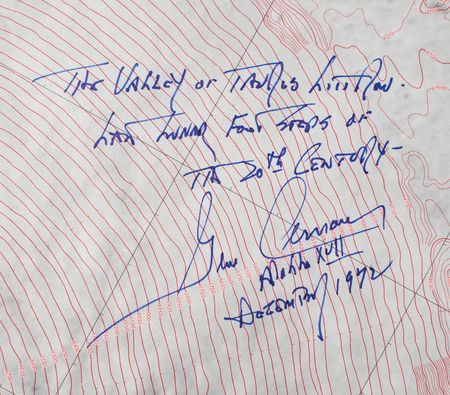 The Valley of Taurus Littrow.
Last Lunar Foot Steps of
The 20th Century-
Gene Cernan
Apollo XVII
December 1972